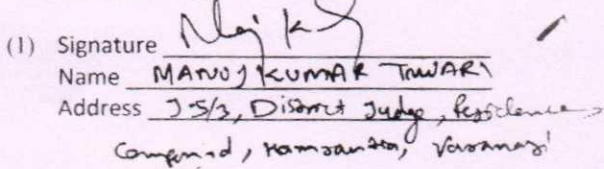 (1) Signature
Name MANOJ KUMAR TIWARI
Address J-5/3, District Judge, Residence
Compound, Varanasi